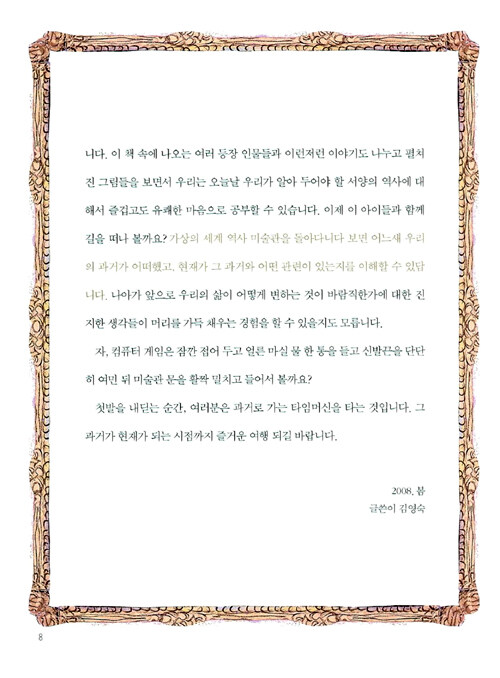 니다. 이 책 속에 나오는 여러 등장 인물들과 이런저런 이야기도 나누고 펼쳐
진 그림들을 보면서 우리는 오늘날 우리가 알아 두어야 할 서양의 역사에 대
해서 즐겁고도 유쾌한 마음으로 공부할 수 있습니다. 이제 이 아이들과 함께
길을 떠나 볼까요? 가상의 세계 역사 미술관을 돌아다니다 보면 어느새 우리
의 과거가 어떠했고, 현재가 그 과거와 어떤 관련이 있는지를 이해할 수 있답
니다. 나아가 앞으로 우리의 삶이 어떻게 변하는 것이 바람직한가에 대한 진
지한 생각들이 머리를 가득 채우는 경험을 할 수 있을지도 모릅니다.
자, 컴퓨터 게임은 잠깐 접어 두고 얼른 마실 물 한 통을 들고 신발끈을 단단
히 여민 뒤 미술관 문을 활짝 밀치고 들어서 볼까요?
첫발을 내딛는 순간, 여러분은 과거로 가는 타임머신을 타는 것입니다. 그
과거가 현재가 되는 시점까지 즐거운 여행 되길 바랍니다.
2008. 봄
글쓴이 김영숙
8